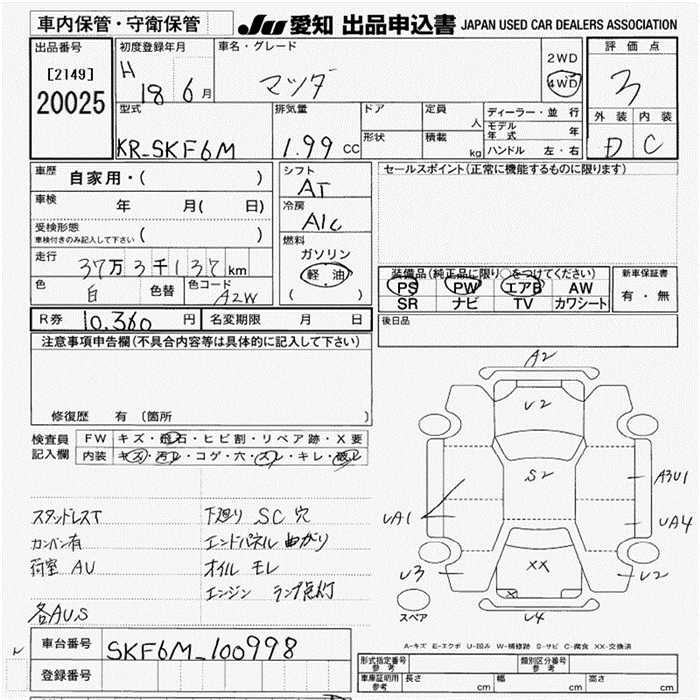 車内保管・守衛保管
JU 愛知 出品申込書 JAPAN USED CAR DEALERS ASSOCIATION
出品番号
[2149]
20025
初度登録年月
H 18 6月
車名・グレード
マツダ
2WD
4WD
評価点
3
外装 内装
D C
型式
KR-SKF6M
排気量
1.99 CC
ドア
形状
定員
人
積載
kg
ディーラー・並行
モデル年式 年
ハンドル 左・右
車歴 自家用・( )
車検 年 月( 日)
受検形態
車検付きのみ記入して下さい ( )
走行
37万3千137km
色
白
色替
色コード
A2W
シフト
AT
冷房
A/C
燃料
ガソリン
軽油
( )
セールスポイント(正常に機能するものに限ります)
装備品(純正品に限り○をつけてください)
PS PW エアB AW
SR ナビ TV カワシート
新車保証書
有・無
R券 10,360円
名変期限 月 日
後日品
注意事項申告欄(不具合内容等は具体的に記入して下さい)
修復歴 有 (箇所 )
検査員記入欄
FW キズ・飛石・ヒビ割・リペア跡・X要
内装 キズ・汚レ・コゲ・穴・スレ・キレ・破レ
スタッドレスT
カンバン有
荷室 AU
各AUS
下廻り SC 穴
エンドパネル 曲がり
オイル モレ
エンジン ランプ点灯
A2
U2
S2
A3U1
UA1
UA4
XX
U3
U2
X
U4
スペア
A-キズ E-エクボ U-凹み W-補修跡 S-サビ C-腐食 XX-交換済
車台番号
SKF6M-100998
登録番号
形式指定番号 参考
類別区分番号 参考
車庫証明用 参考
長さ cm
幅 cm
高さ cm